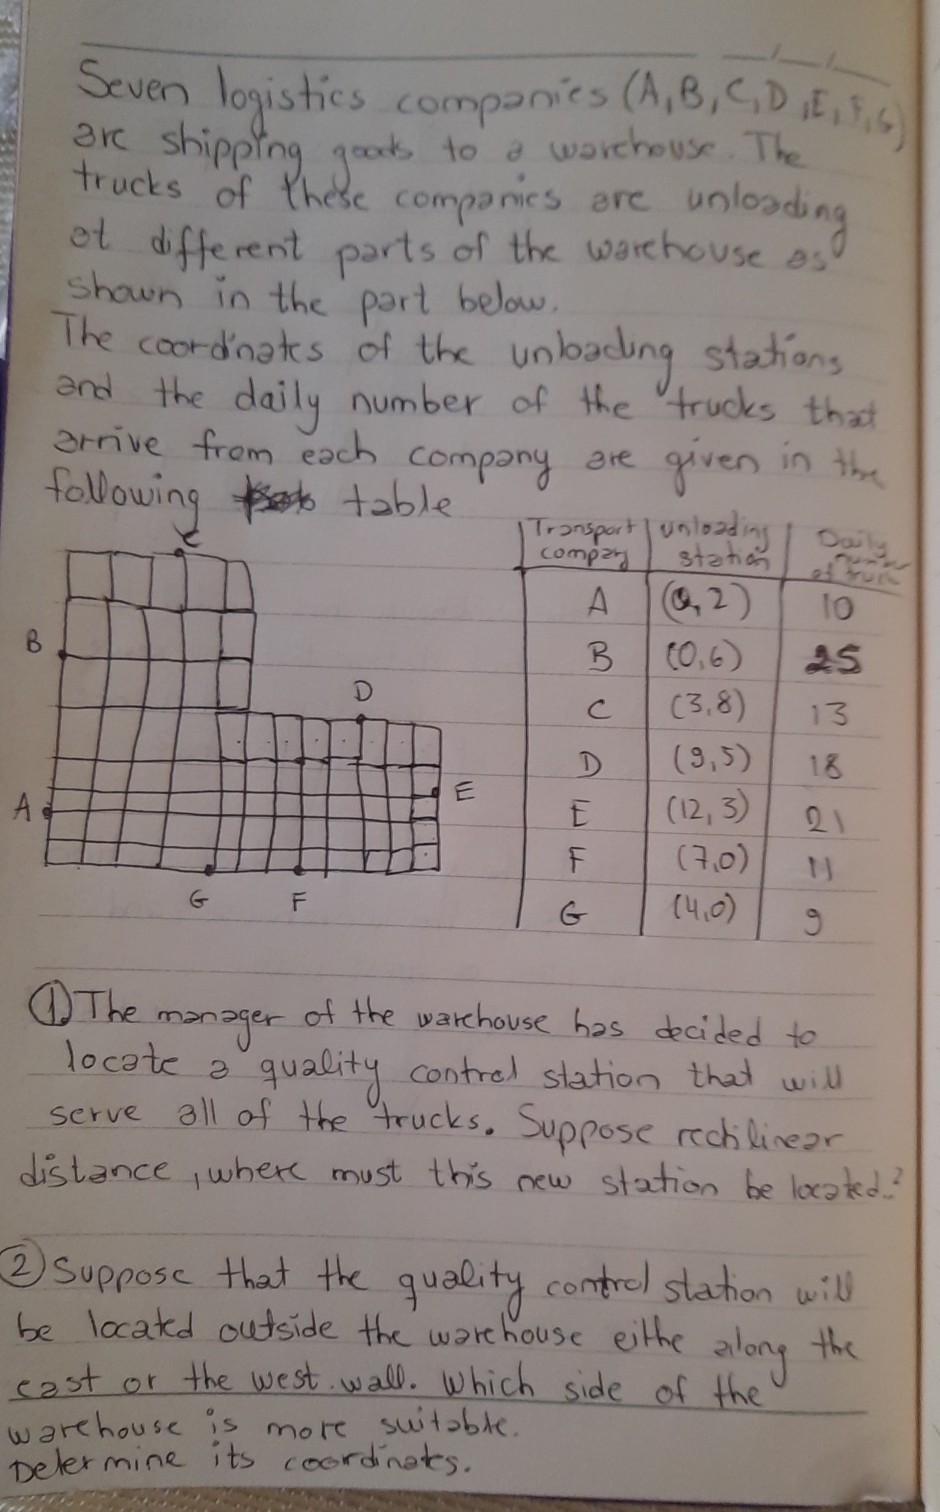 Seven logistics companies (A,B,C,D,E,F,G)
are shipping goods to a warehouse. The
trucks of these companies are unloading
at different parts of the warehouse as
shown in the part below.
The coordinates of the unloading stations
and the daily number of the trucks that
arrive from each company are given in the
following table
Transport company unloading station Daily number of truck
A (0,2) 10
B (0,6) 25
C (3,8) 13
D (9,5) 18
E (12,3) 21
F (7,0) 11
G (4,0) 9
C
B
D
A
E
G F
① The manager of the warehouse has decided to
locate a quality control station that will
serve all of the trucks. Suppose rechilinear
distance, where must this new station be located.?
② Suppose that the quality control station will
be located outside the warehouse eithe along the
east or the west wall. Which side of the
warehouse is more suitable.
Determine its coordinates.